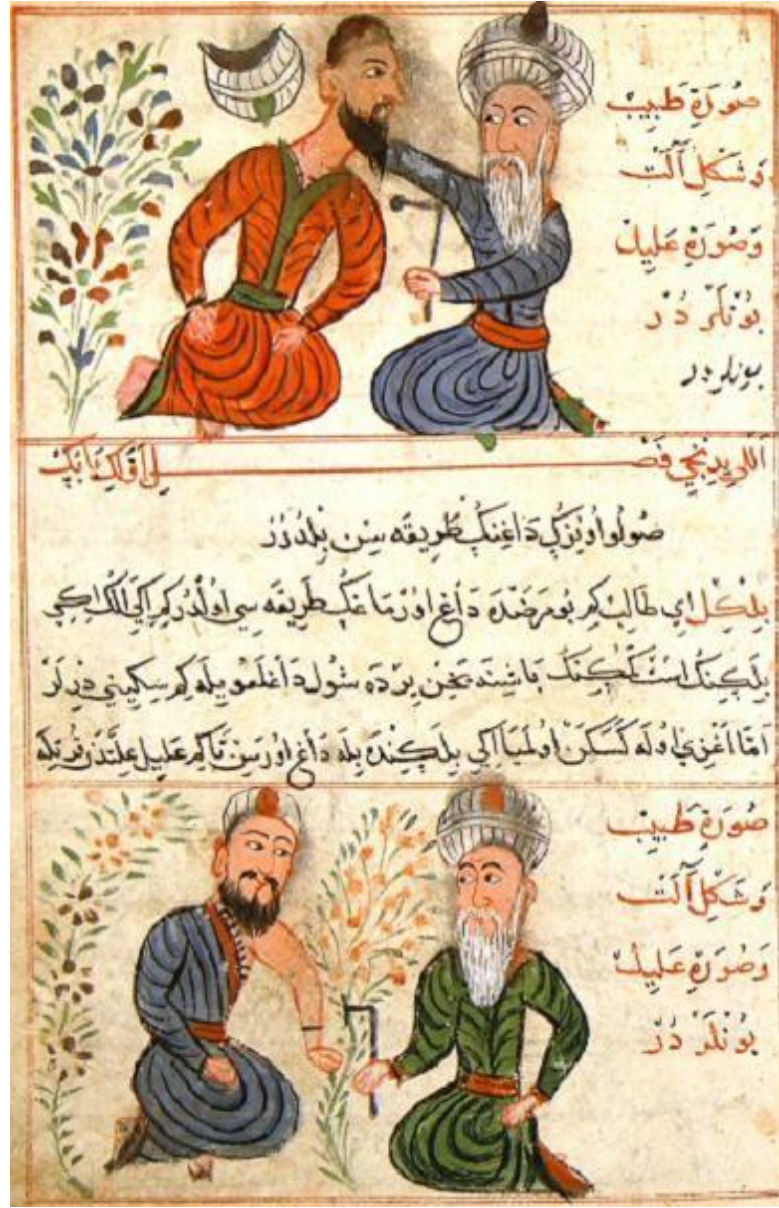 صُورَةِ طَبِيبْ
وَشَكْلِ آلَتْ
وَصُورَةِ عَلِيلْ
بُونْلَرْ دُرْ
بونلردر
اَللِي يِدِنْجِي فَصْ
صُولُو اُويُزكْ دَاغِنِكْ طَرِيقَه سِنْ بِلْدُرُرْ
بِلْكِلْ اِي طَالِبْ كِمْ بُو مَرَضْدَه دَاغْ اُورْمَاغِكْ طَرِيقَه سِي اُولْدُرْ كِمْ اِكِي
بِلَكِنِكْ اُسْتْ پَاشِنَه يَقِنْ يِرْدَه شُولْ دَاغْلَغُويِلَه كِمْ سِكِّينِي دِرْلَرْ
اَمَّا اَغْزِي اُولَه كَسْكِنْ اُولْمَيَا اِكِي بِلَكِنْدَه بِلَه دَاغْ اُورَسِنْ تَا كِمْ عَلِيلْ عِلَّتْدَنْ قُرْتِلَه
صُورَةِ طَبِيبْ
وَشَكْلِ آلَتْ
وَصُورَةِ عَلِيلْ
بُونْلَرْ دُرْ